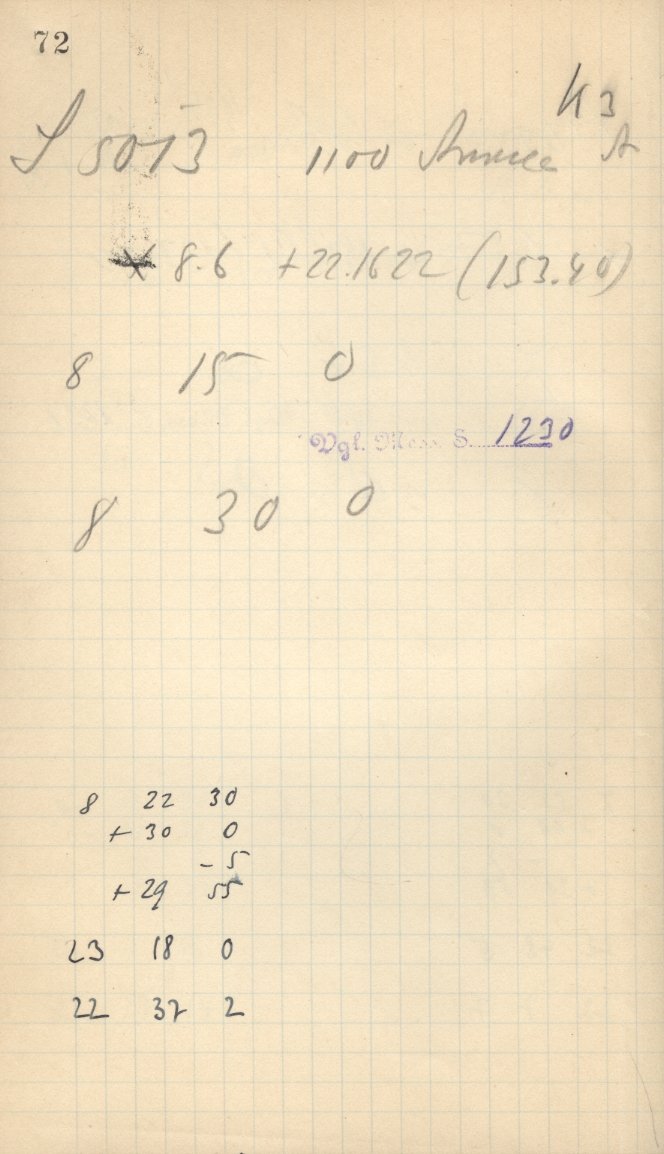 72
K 3
S 5013 1100 A
8.6 +22.1622 (153.40)
8 15 0
Vgl. S. 1230
8 30 0
8 22 30
+ 30 0
- 5
+ 29 55
23 18 0
22 37 2